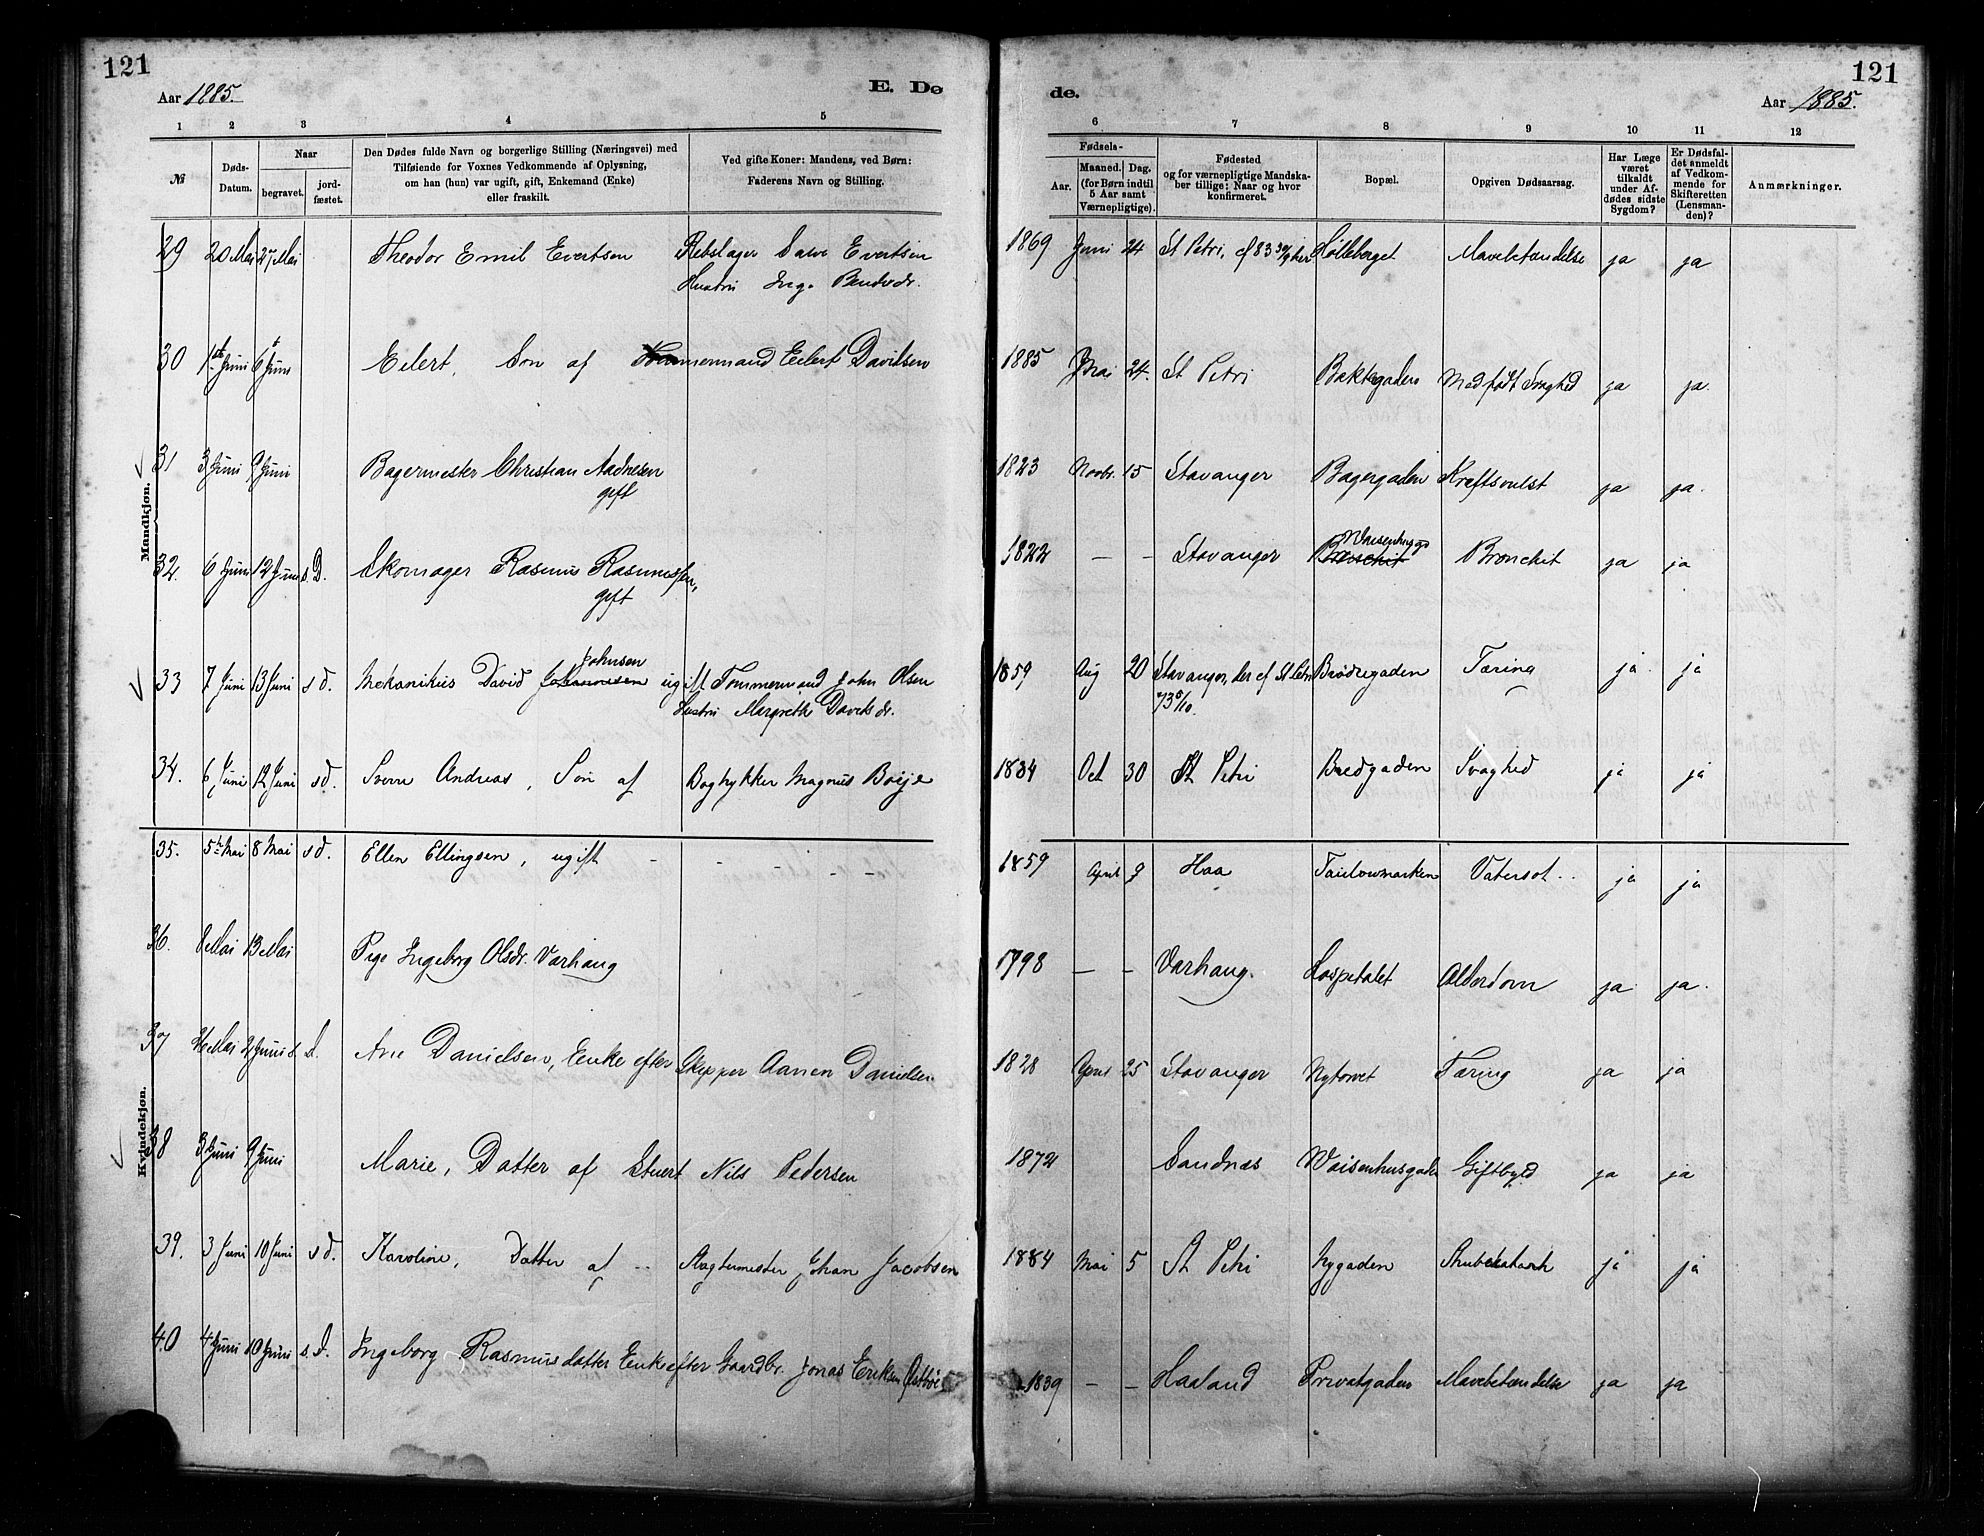 121
Aar 1885.
E. Dø
1 2 3 4 5
№
Døds-Datum.
Naar
begravet. jordfæstet.
Den Dødes fulde Navn og borgerlige Stilling (Næringsvei) med
Tilføiende for Voxnes Vedkommende af Oplysning,
om han (hun) var ugift, gift, Enkemand (Enke)
eller fraskilt.
Ved gifte Koner: Mandens, ved Børn:
Faderens Navn og Stilling.
Mandkjøn.
29 20 Mai 27 Mai Theodor Emil Evertsen Rebslager Salve Evertsen
Hustru Ing.
30 1ste Juni 6te Juni Eilert, Søn af Tømmermand Eilert Davidsen
31 3 Juni 9 Juni Bagermester Christian Aadnesen
gift
32. 6 Juni 12 Juni s. D. Skomager Rasmus Rasmussen,
gift
33 7 Juni 13 Juni s d. Mekanikus David Johannesen Johnsen ugift Tømmermand John Olsen
Hustru Margrethe Davidsdr.
34. 6 Juni 12 Juni s d. Svern Andreas, Søn af Bogtrykker Magnus Boije
Kvindekjøn.
35. 5te Mai 8 Mai s d. Ellen Ellingsen, ugift - - - - -
36. 8 Mai 13 Mai Pige Ingeborg Olsdr. Varhaug
37 26 Mai 2 Juni s. D. Ane Danielsen, Enke efter Skipper Aanen Danielsen
38 3 Juni 9 Juni Marie, Datter af Stuert Nils Pedersen
39. 3 Juni 10 Juni s d. Karoline, Datter af -- Slagtermester Johan Jacobsen
40 4 Juni 10 Juni s. D. Ingeborg Rasmusdatter Enke efter Gaardbr. Jonas Eriksen
121
Aar 1885.
de.
6 7 8 9 10 11 12
Fødsels-
Aar. Maaned. Dag.
(for Børn indtil
5 Aar samt
Værnepligtige).
Fødested
og for værnepligtige Mandskaber tillige: Naar og hvor
konfirmeret.
Bopæl.
Opgiven Dødsaarsag.
Har Læge
været
tilkaldt
under Afdødes sidste
Sygdom?
Er Dødsfaldet anmeldt
af Vedkommende for
Skifteretten
(Lensmanden)?
Anmærkninger.
1869 Juni 24 St Petri, cf 83 30/9 her Hølleberget Mavebetændelse ja ja
1885 Mai 24. St Petri Bakkegaden Medfødt Svaghed ja ja.
1823 Novbr. 15 Stavanger Bagergaden Kræftsvulst ja ja.
1822 - - Stavanger Bronchit Waisenhusgd Bronchit ja ja
1859 Aug 20 Stavanger, der cf St Petri Brødregaden Tæring ja ja
73 5/10.
1834 Oct 30 St Petri Bredgaden Svaghed ja ja
1859 April 9 Haa Taulowmarken Vatersot .. ja ja
1798 - - Varhaug. Hospitalet Alderdom ja ja.
1828 April 25 Stavanger Nytorvet Tæring ja ja
1872 Sandnæs Waisenhusgaden Giftbyld ja ja
1884 Mai 5 St Petri Nygaden Strubekatarrh ja ja
1839 - - Haaland Privatgaden Mavebetændelse ja ja